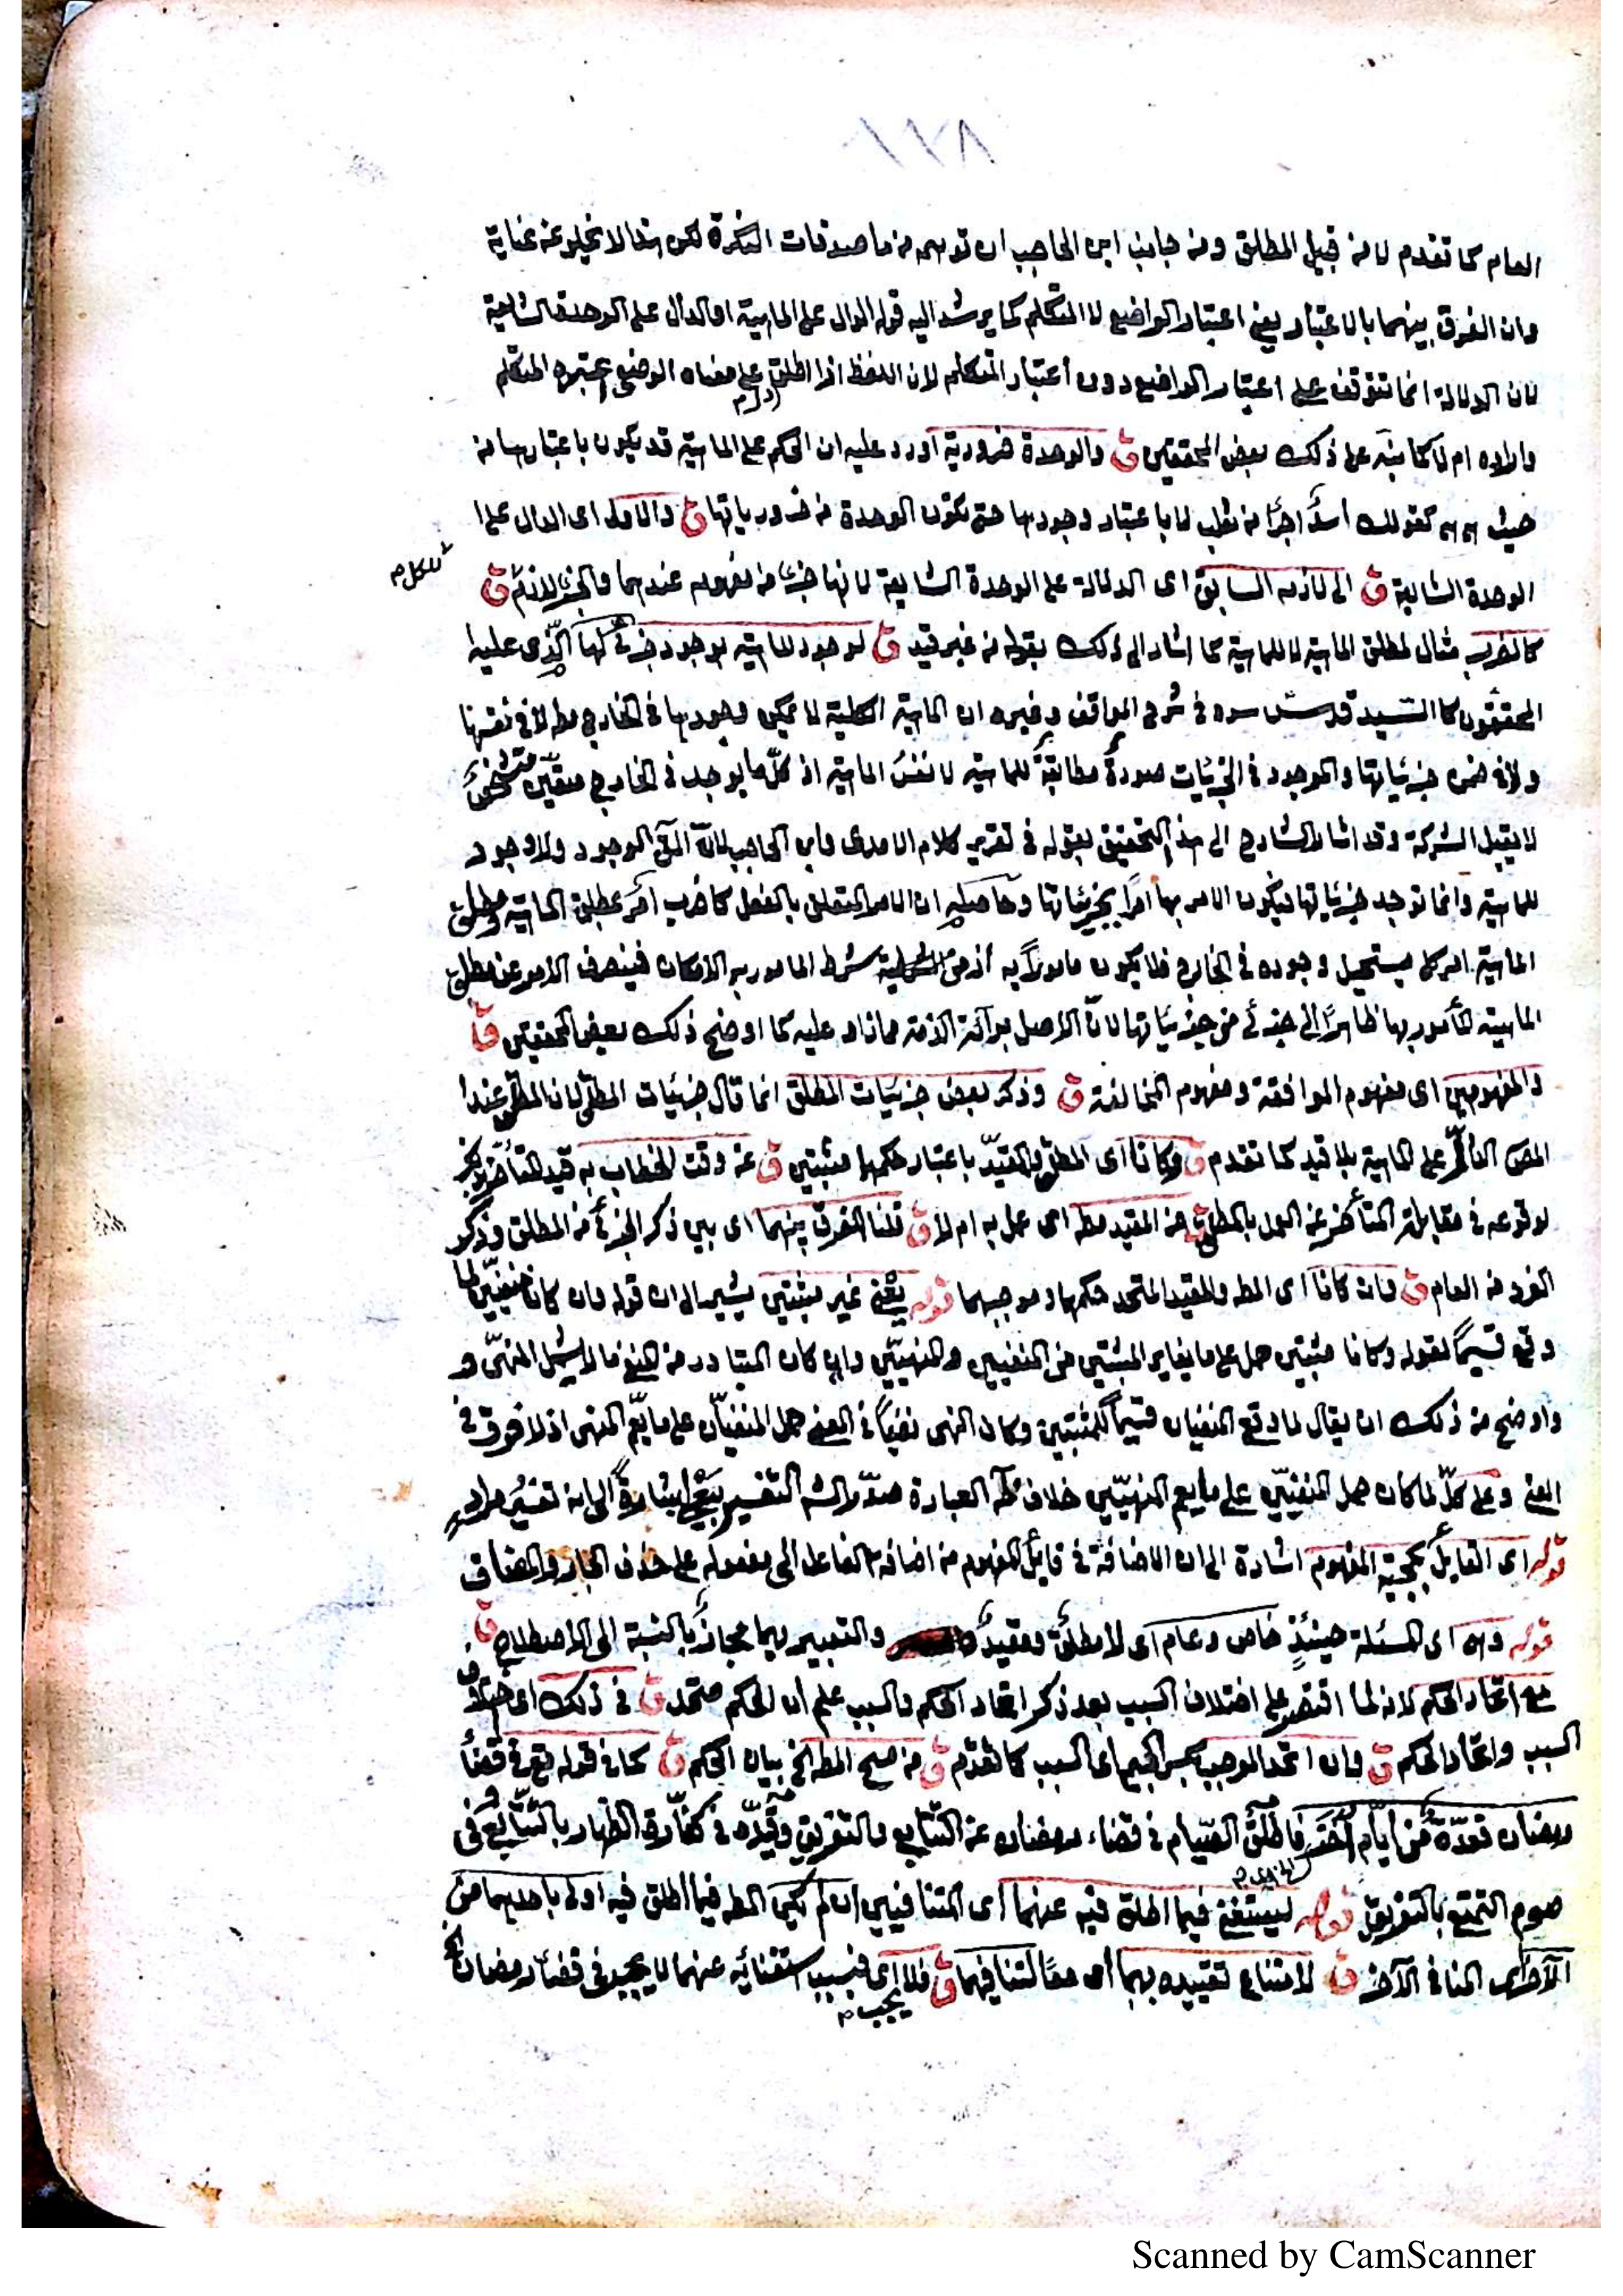 العام كما تقدم لا من قبيل المطلق ومن جانب ابن الحاجب ان توهم من ما صدقات النكرة لكن هذا لا يخلو عن عناية
وان الفرق بينهما بالاعتبار يعني اعتبار الواضع لا المتكلم كما يرشد اليه قوله الدال على الماهية او الدال على الوحدة الشايعة
لان الدلالة انما تتوقف على اعتبار الواضع دون اعتبار المتكلم لان اللفظ اذا اطلق على معناه الوضعي اعتبره المتكلم
واراده ام لا كما نبه على ذلك بعض المحققين ق والوحدة ضرورية اورد عليه ان الحكم على الماهية قد يكون باعتبارها من
حيث هي هي كقولك اسد اجرأ من ثعلب لا باعتبار وجودها حتى تكون الوحدة من ضرورياتها ق والاول اى الدال على
الوحدة الشايعة ق الى لازمه السابق اى الدلالة على الوحدة الشايعة لانها جزء من مفهومه عندهما والجزء لازم ق
للكل م
كالضرب مثال لمطلق الماهية لا للماهية كما اشار الى ذلك بقوله من غير قيد ق لوجود الماهية بوجود جزئها الذى عليه
المحققون كالسيد قدس سره فى شرح المواقف وغيره ان الماهية الكلية لا يمكن وجودها فى الخارج مطلقا لا فى نفسها
ولا فى ضمن جزئياتها والموجود فى الجزئيات صورة مطابقة للماهية لا نفس الماهية اذ كل ما يوجد فى الخارج متعين متشخص
لا يقبل الشركة وقد اشار الشارح الى هذا التحقيق بقوله فى تقرير كلام الامدى وابن الحاجب لانه الوجود ولا وجود
للماهية وانما توجد جزئياتها فيكون الامر بها امرا بجزئياتها وحاصله ان الامر المتعلق بالفعل كاضرب امر بمطلق الماهية ومطلق
الماهية امر كلى يستحيل وجوده فى الخارج فلا يكون مامورا به اذ من شرط المامور به الامكان فينصرف الامر عن مطلق
الماهية المأمور بها ظاهرا الى جزئى من جزئياتها لان الاصل برآءة الذمة مما زاد عليه كما اوضح ذلك بعض المحققين ق
والمفهومين اى مفهوم الموافقة ومفهوم المخالفة ق وذكر بعض جزئيات المطلق انما قال جزئيات المطلق لان المطلق عند
المص الدال على الماهية بلا قيد كما تقدم ق وكانا اى المطلق والمقيد باعتبار حكمهما مثبتين ق عن وقت الخطاب به قيد التأخر بذلك
لوقوعه فى مقابلة المتأخر عن العمل بالمطلق ق عن المقيد مطه اى عمل به ام لا ق قلنا الفرق بينهما اى بين ذكر الجزئى من المطلق وذكر
الفرد من العام ق وان كانا اى المطه والمقيد المتحد حكمهما وموجبهما قوله يعنى غير مثبتين يشير الى ان قوله وان كانا منفيين لما
وقع قسيما لقوله وكانا مثبتين حمل على ما يغاير المثبتين من المنفيين والمنهيين وان كان المتبادر من النفى ما لا يشمل المنهى و
واوضح من ذلك ان يقال لما وقع المنفيان قسيما للمثبتين وكان النهى نفيا فى المعنى حمل المنفيان على ما يعم النهى اذ لا فرق فى
المعنى وعلى كل لما كان حمل المنفيين على ما يعم المنهيين خلاف ظه العبارة صدر الشه التفسير بيعنى اشارة الى انه تفسير مراد
قوله اى القايل بحجية المفهوم اشارة الى ان الاضافة فى قايل المفهوم من اضافة الفاعل الى مفعوله على حذف الجار والمضاف
قوله وهى اى المسئلة حينئذ خاص وعام اى لا مطلق ومقيد والتعبير بهما مجاز بالنسبة الى الاصطلاح ق
مع اتحاد الحكم لانه لما اقتصر على اختلاف السبب بعد ذكر اتحاد الحكم والسبب علم ان الحكم متحد ق فى ذلك اى اختلاف
السبب واتحاد الحكم ق وان اتحد الموجب بكسر الجيم اى السبب كما تقدم ق من مسح المطه الخ بيان الحكم ق كما فى قوله تع فى قضأ
رمضان فعدة من ايام اخر فاطلق الصيام فى قضاء رمضان عن التتابع والتفريق وقيده فى كفارة الظهار بالتتابع وفى
صوم التمتع بالتفريق قوله يستغنى فيما اطلق فيه عنهما اى المتنافيين ان لم يكن المطه فيما اطلق فيه اولى باحدهما من
الآخر اى المنافى الآخر ق لامتناع تقييده بهما اى معا لتنافيهما ق فلا اى فبسبب استغنائه عنهما لا يجب فى قضأ رمضان
يجب م